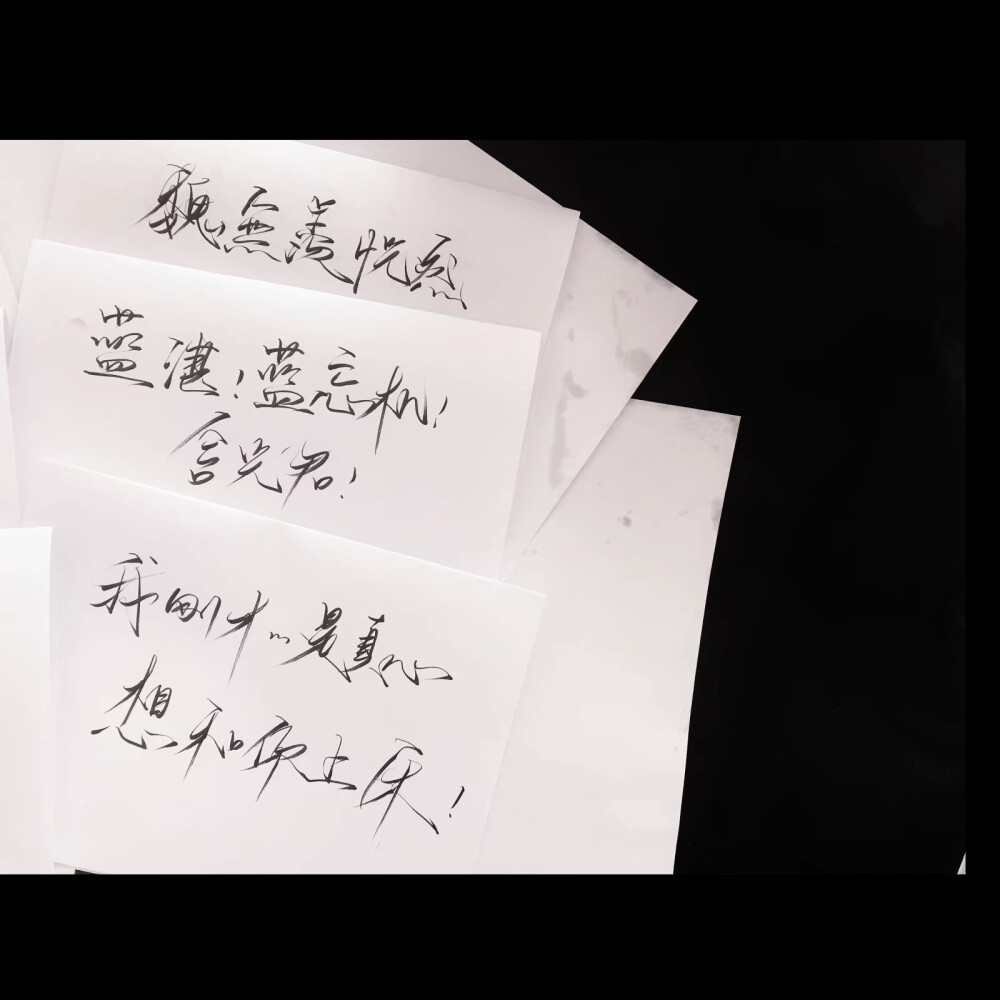 魏無羨恍然
蓝湛！蓝忘机！
含光君！
我刚才…是真心
想和你上床！